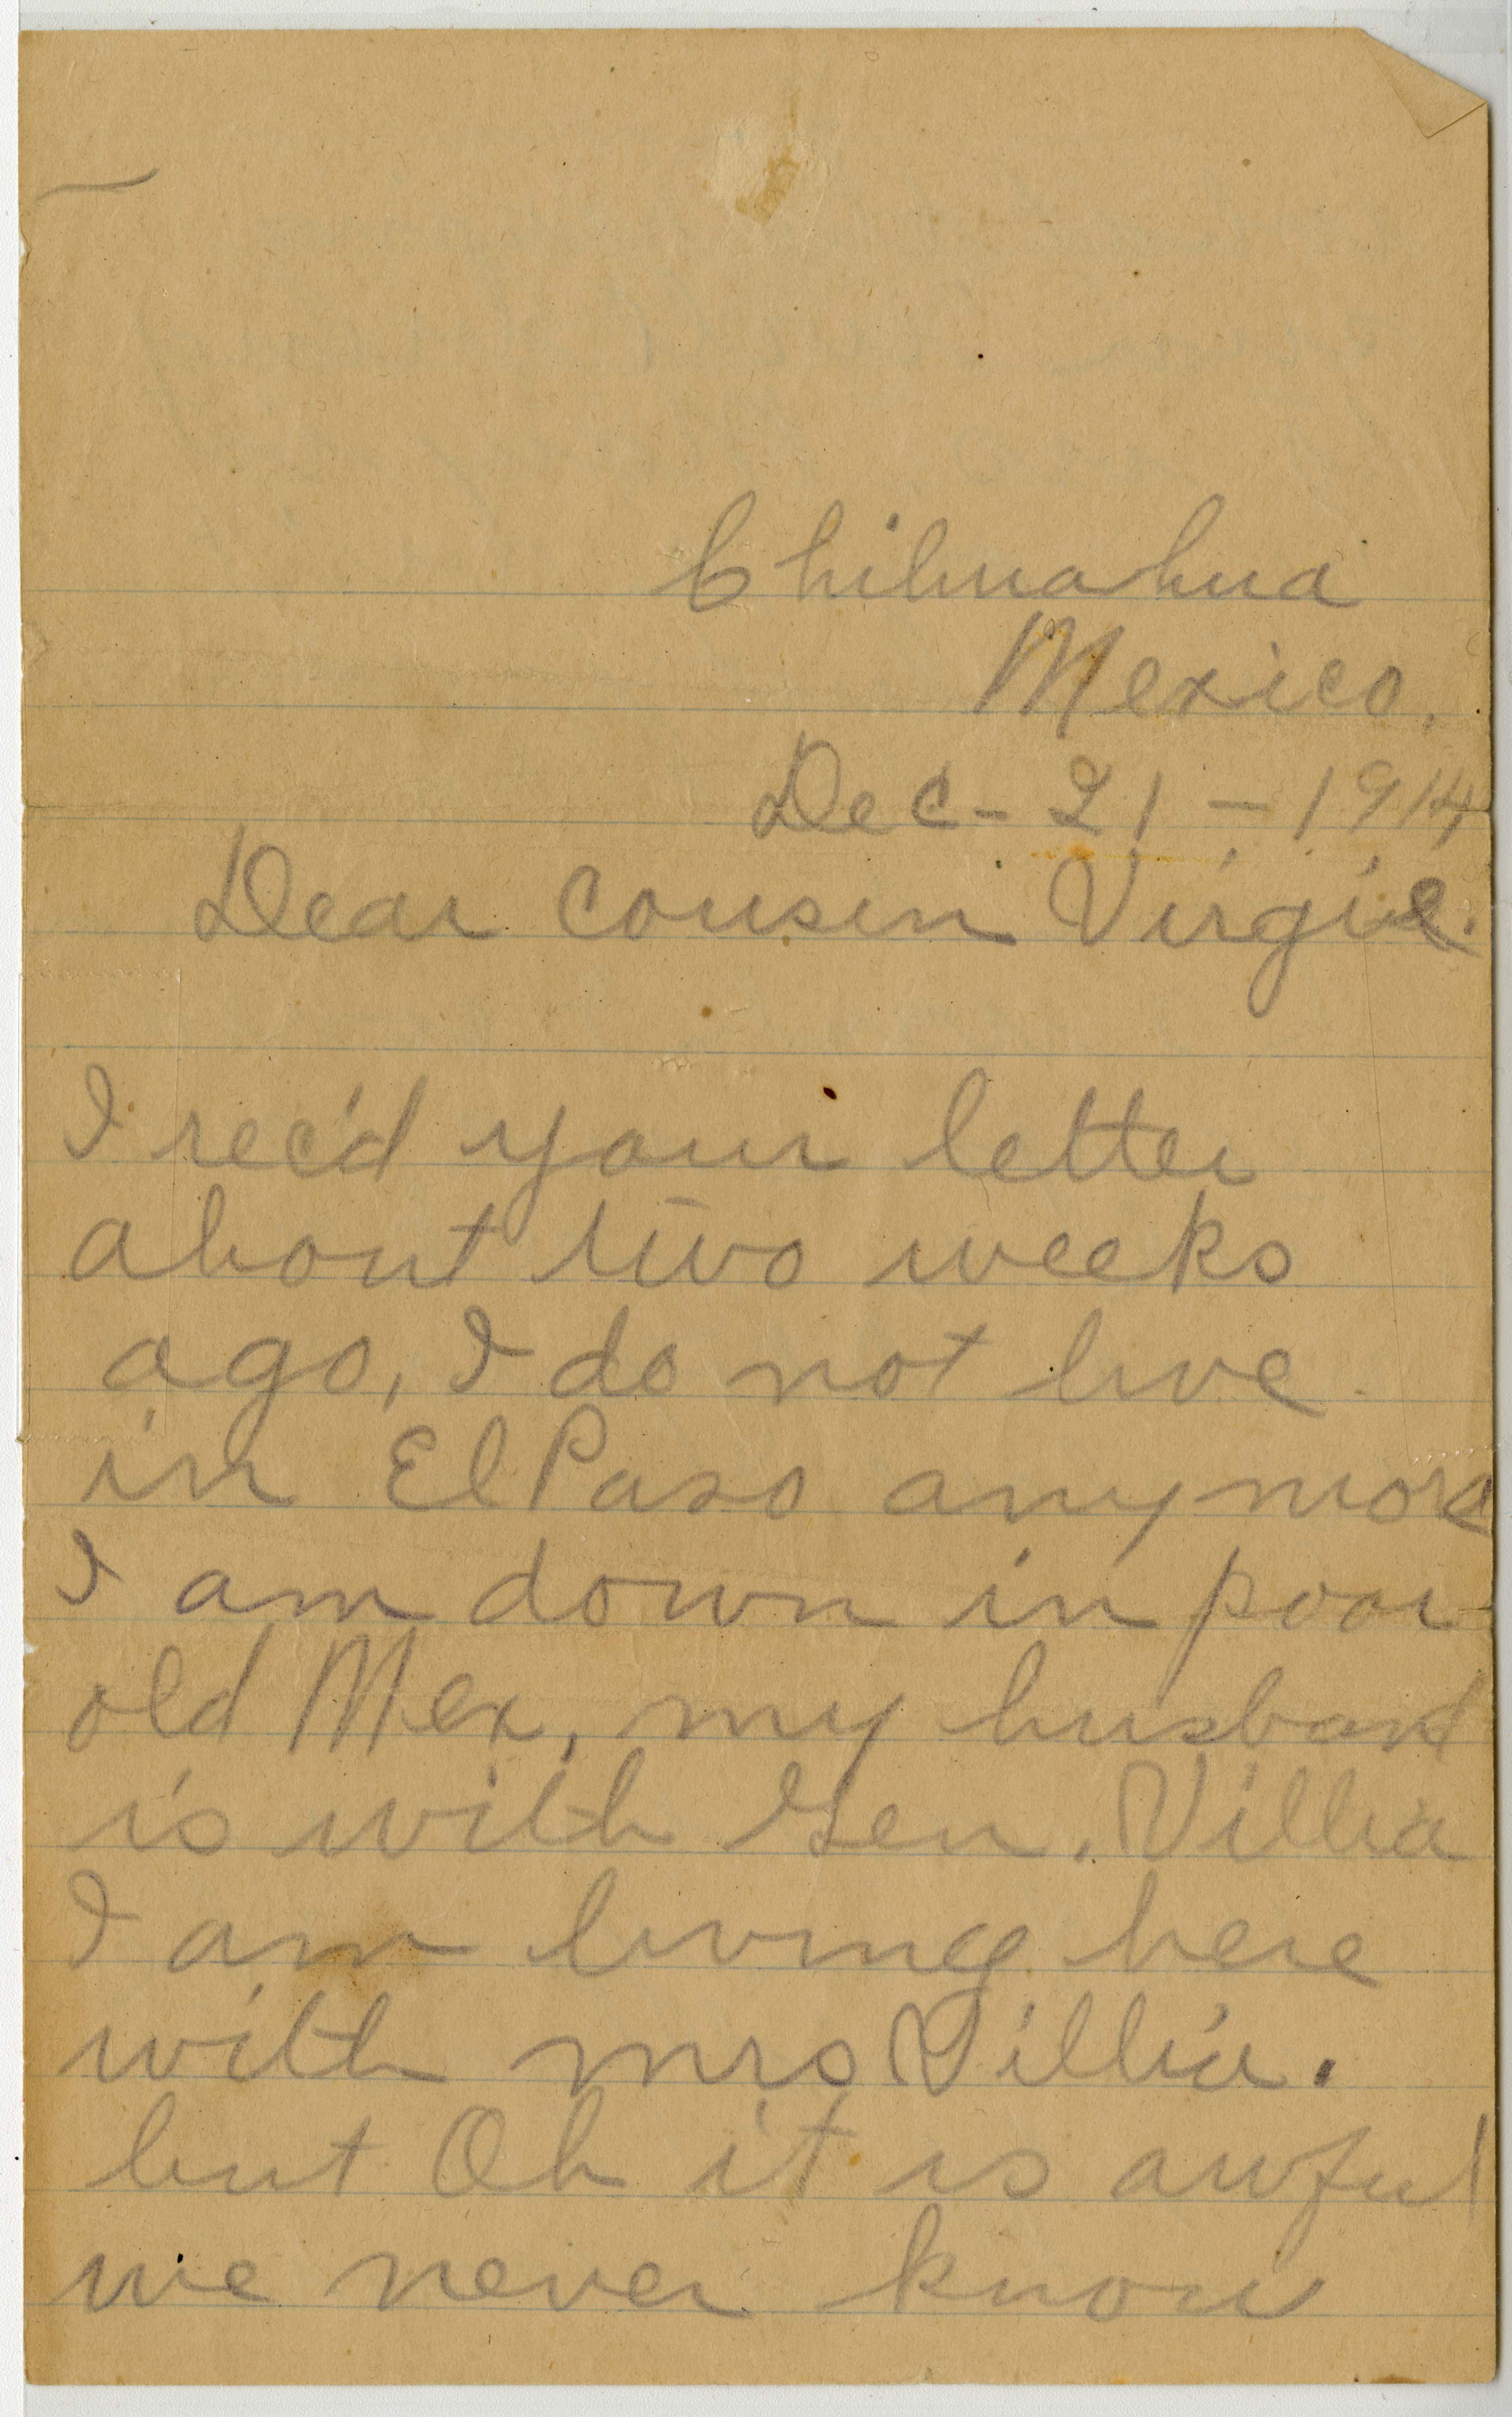 Chihuahua
Mexico.
Dec - 21 - 1914
Dear Cousin Virgie.
I rec'd your letter
about two weeks
ago, I do not live
in El Paso anymore
I am down in poor
old Mex, my husband
is with Gen. Villia
I am living here
with mrs Villia.
but Oh it is awful
we never know